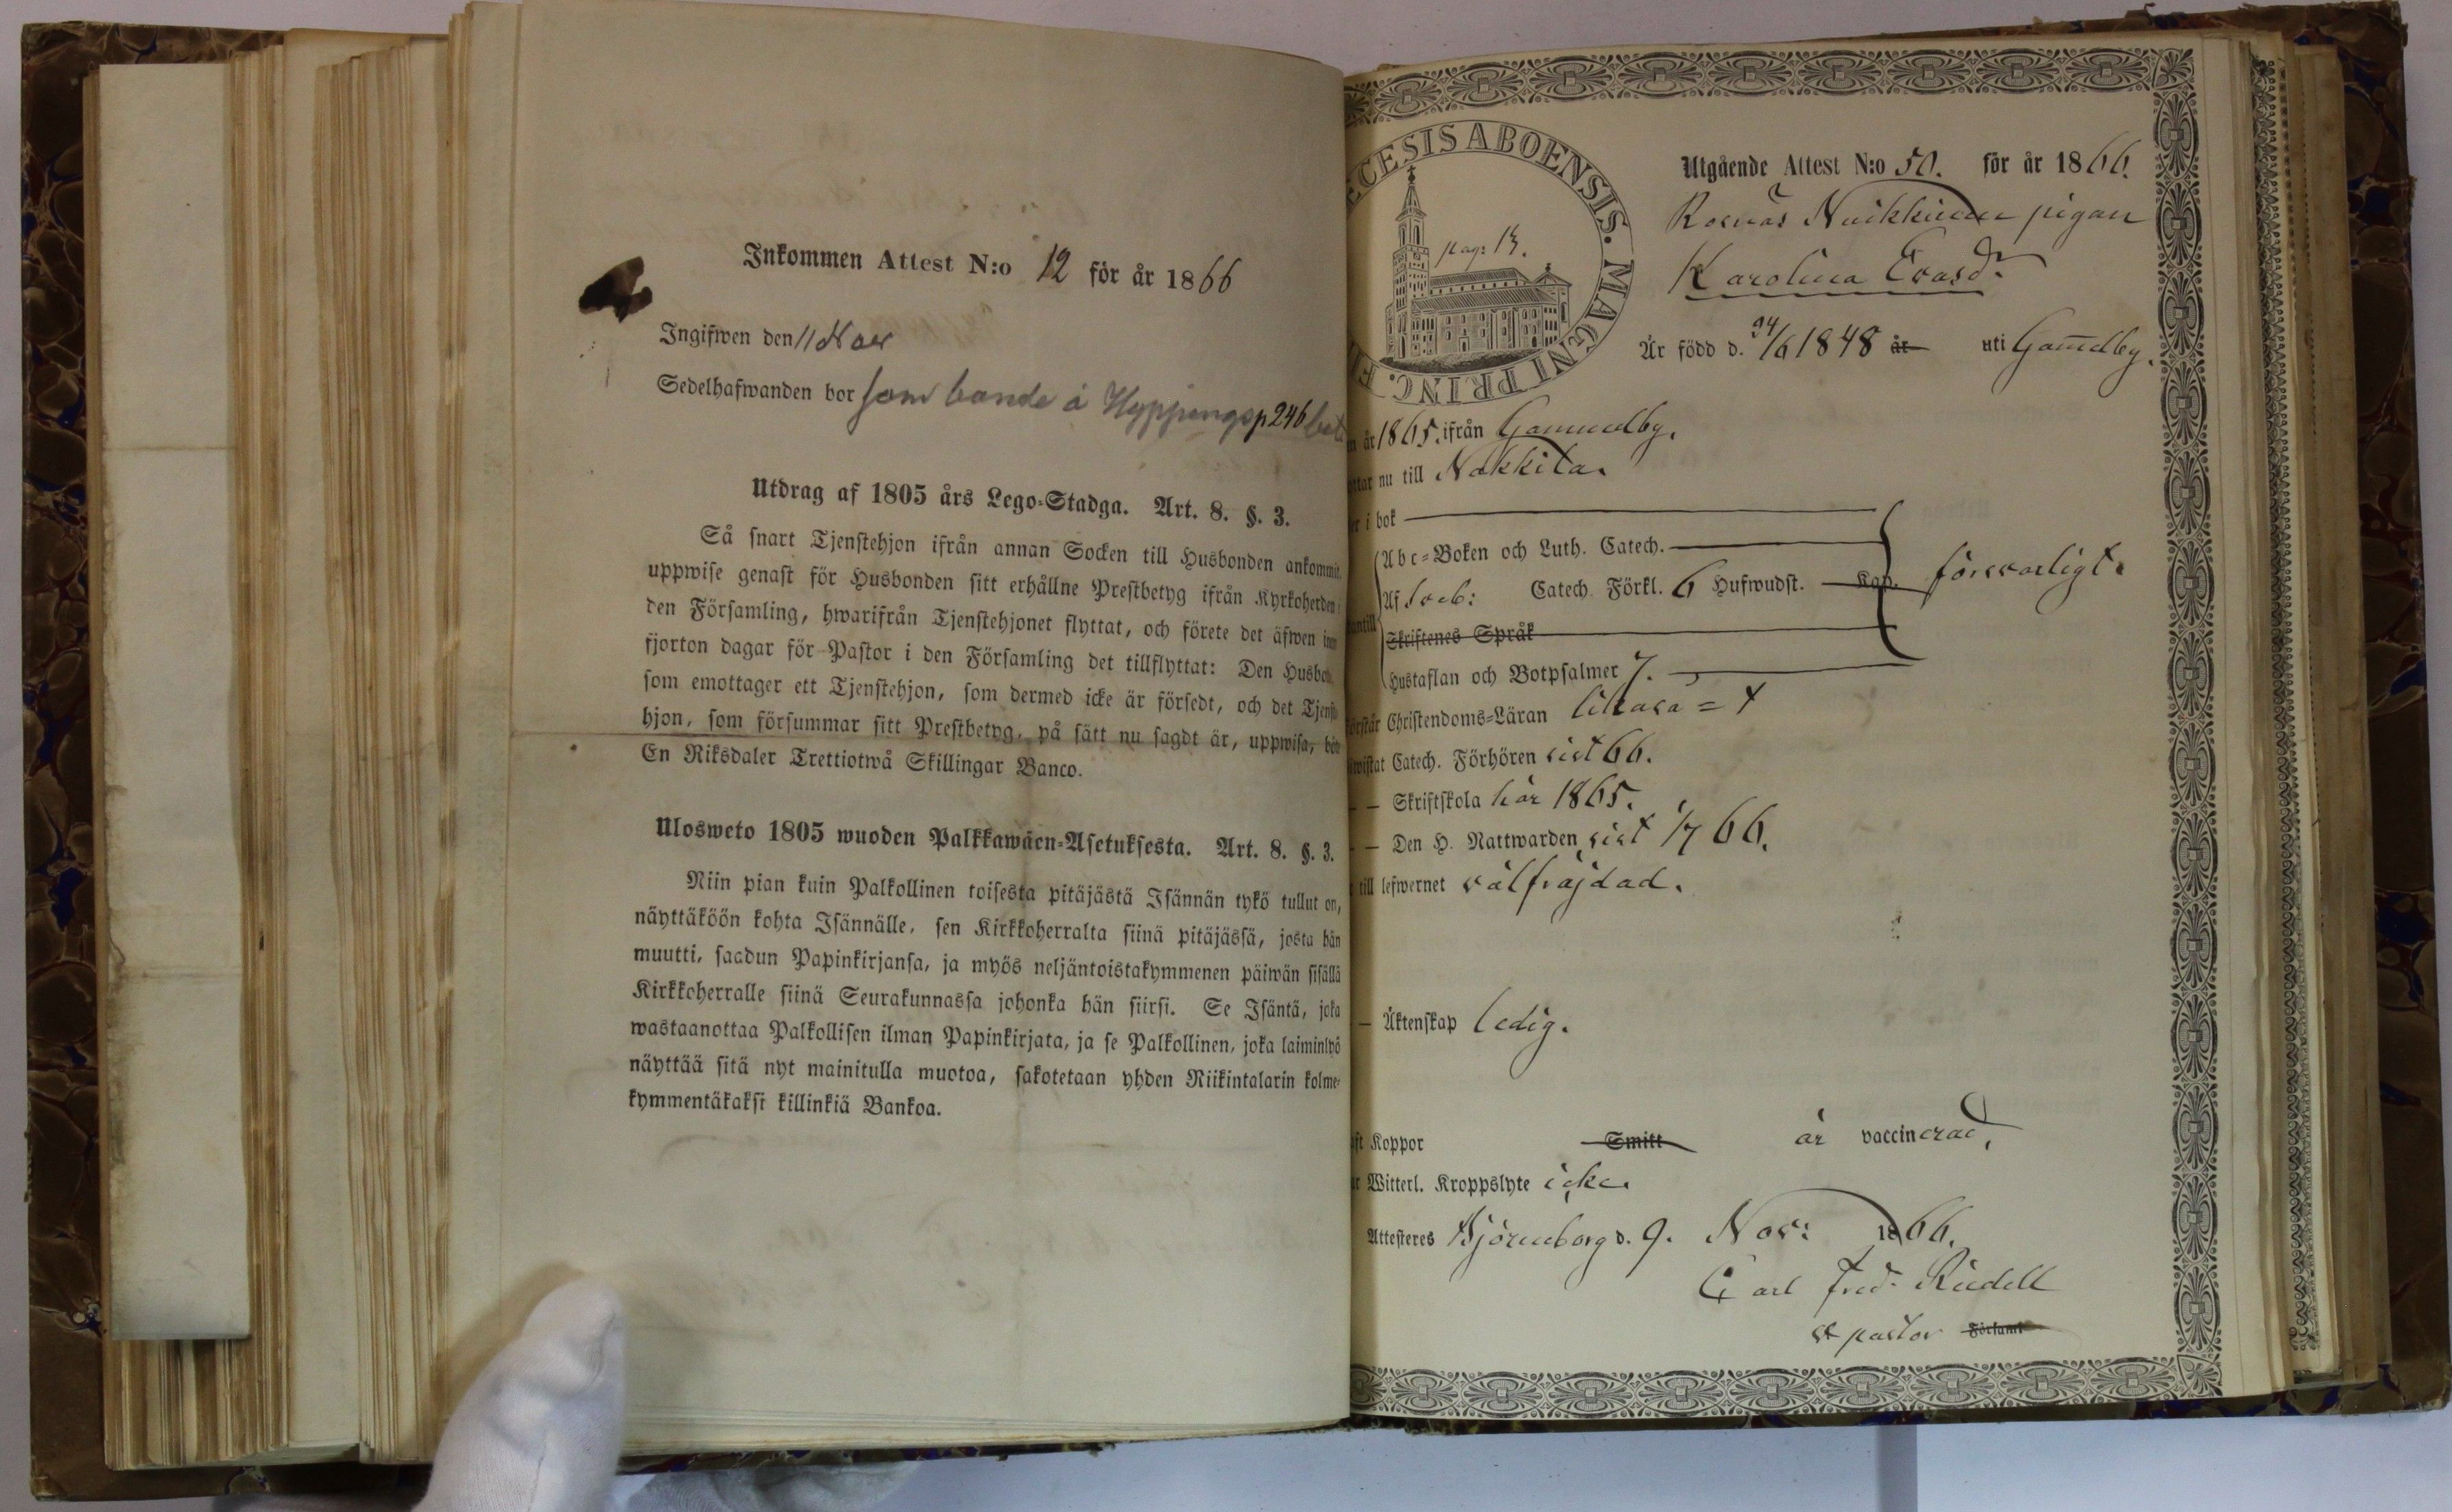 Inkommen Attest N:o 12 för år 1866
Ingifwen den 11 Nov
Sedelhafwanden bor som bonde å Hyppings p 246
Utdrag af 1805 års Lego-Stadga. Art. 8. §. 3.
Så snart Tjenstehjon ifrån annan Socken till Husbonden ankommit,
uppwise genast för Husbonden sitt erhållne Prestbetyg ifrån Kyrkoherden i
den Församling, hwarifrån Tjenstehjonet flyttat, och förete det äfwen inom
fjorton dagar för Pastor i den Församling det tillflyttat: Den Husbonde
som emottager ett Tjenstehjon, som dermed icke är försedt, och det Tjenste-
hjon, som försummar sitt Prestbetyg, på sätt nu sagdt är, uppwisa, böte
En Riksdaler Trettiotwå Skillingar Banco.
Ulosweto 1805 wuoden Palkkawäen-Asetuksesta. Art. 8. §. 3.
Niin pian kuin Palkollinen toisesta pitäjästä Isännän tykö tullut on,
näyttäköön kohta Isännälle, sen Kirkkoherralta siinä pitäjässä, josta hän
muutti, saadun Papinkirjansa, ja myös neljäntoistakymmenen päiwän sisällä
Kirkkoherralle siinä Seurakunnassa johonka hän siirsi. Se Isäntä, joka
wastaanottaa Palkollisen ilman Papinkirjata, ja se Palkollinen, joka laiminlyö
näyttää sitä nyt mainitulla muotoa, sakotetaan yhden Riikintalarin kolme-
kymmentäkaksi killinkiä Bankoa.
ECESIS ABOENSIS. MAGNI PRINC. FI
pag: 13.
Utgående Attest N:o 50. för år 1866.
Rosnäs pigan
Karolina Evasdr
Är född d. 24/6 1848 år uti Gammelby.
år 1865. ifrån Gammelby.
ttar nu till Nakkila.
er i bok
Abc-Boken och Luth. Catech.
Af Sveb: Catech. Förkl. 6 Hufwudst. Kap. försvarligt.
antill
Skriftenes Språk
Hustaflan och Botpsalmer 7.
örstår Christendoms-Läran likaså = t
wistat Catech. Förhören sist 66.
— — Skriftskola här 1865.
— — Den H. Nattwarden sist 1/7 66.
till lefwernet välfräjdad.
— Äktenskap ledig.
ft Koppor Smitt är vaccinerad,
r Witterl. Kroppslyte icke.
Attesteres Björneborg d. 9. Nov: 1866.
Carl Fred. Riedell
vt pastor Församl